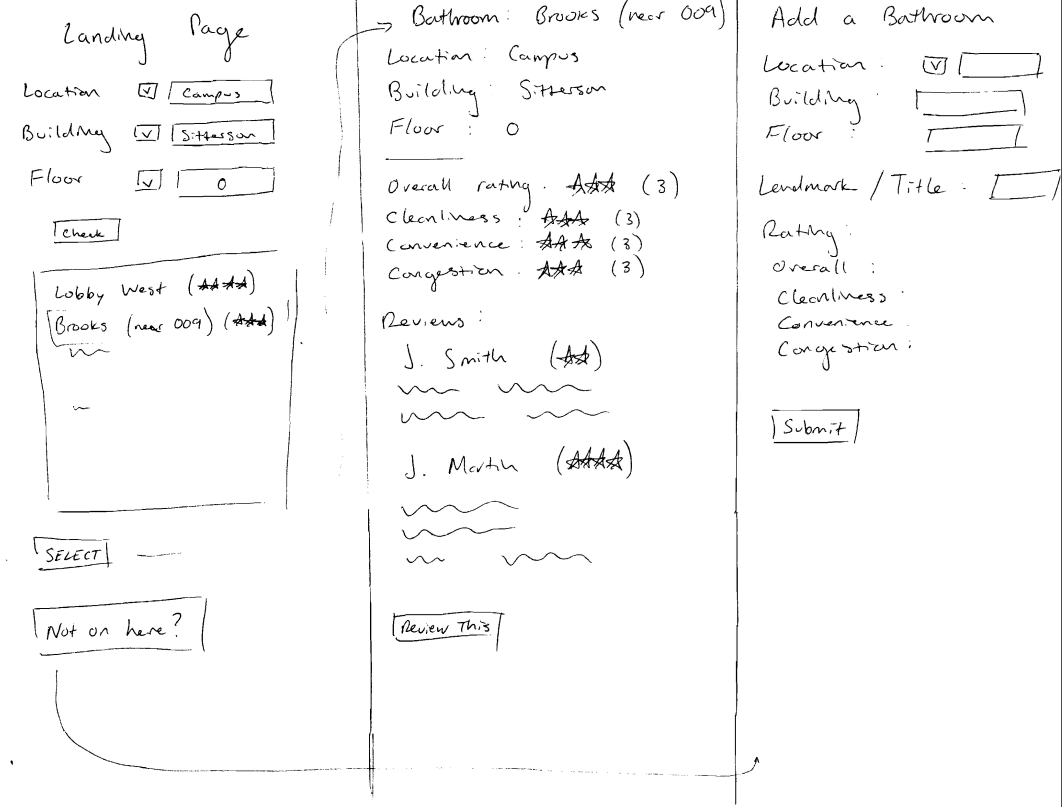 Landing Page
Location V Campus
Building V Sitterson
Floor V 0
Check
Lobby West (★★★★)
Brooks (near 009) (★★★)
SELECT
Not on here?
Bathroom: Brooks (near 009)
Location: Campus
Building: Sitterson
Floor: 0
Overall rating. ★★★ (3)
Cleanliness: ★★★ (3)
Convenience: ★★★ (3)
Congestion. ★★★ (3)
Reviews:
J. Smith (★★)
J. Martin (★★★★)
Review This
Add a Bathroom
Location. V
Building
Floor:
Landmark / Title:
Rating:
Overall:
Cleanliness:
Convenience
Congestion:
Submit